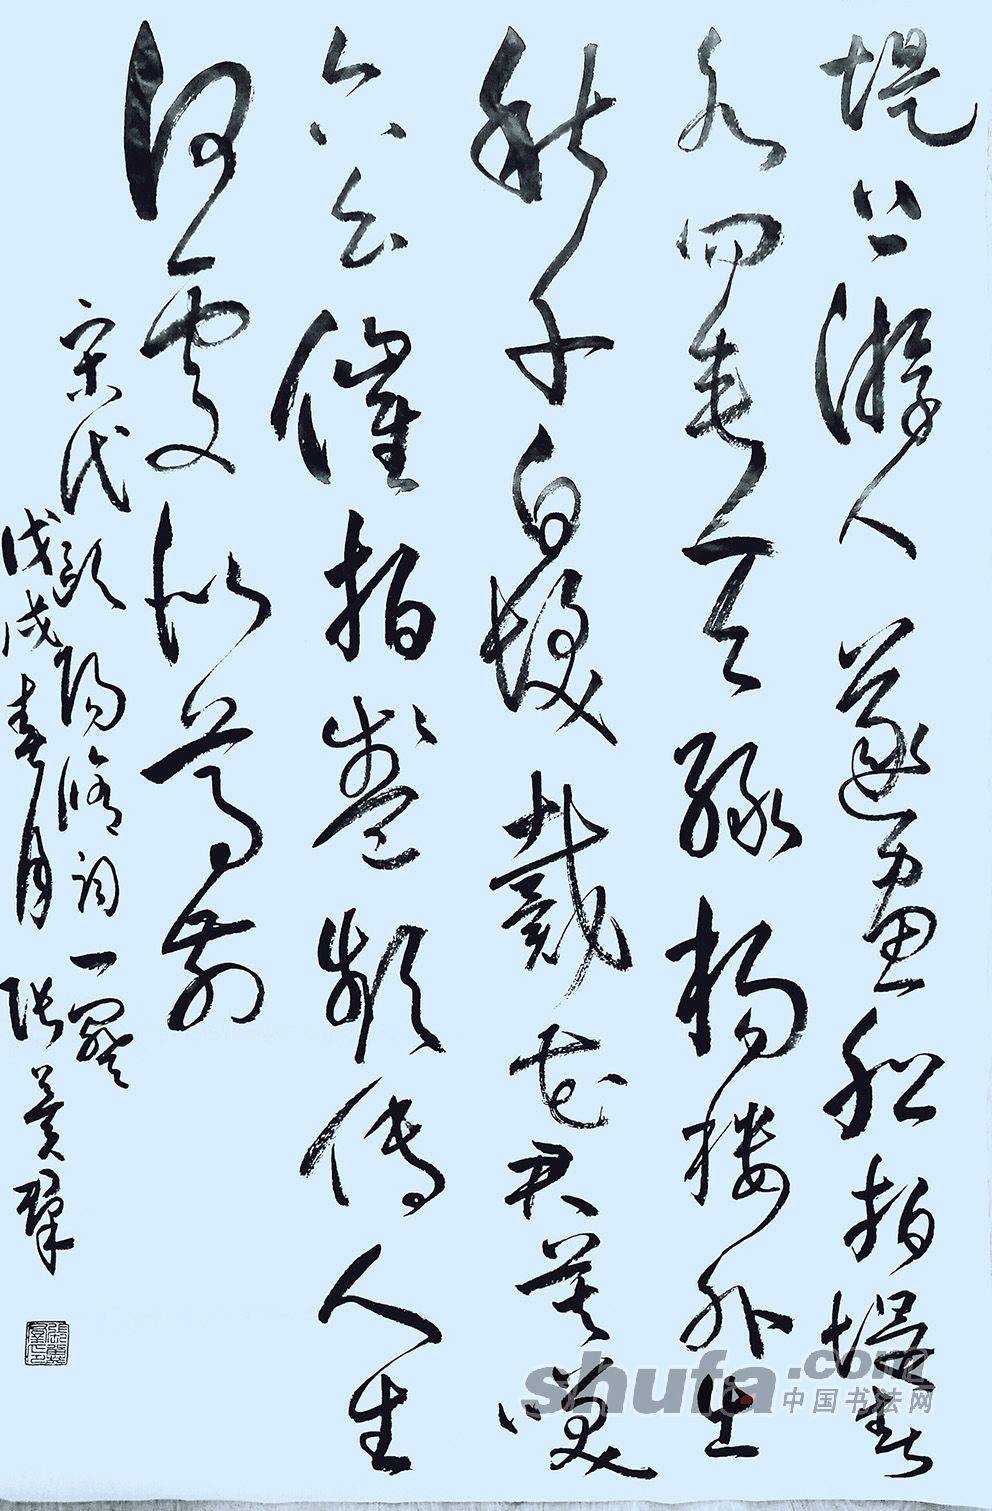 堤上游人逐画船拍堤春
水四垂天绿杨楼外出
秋千白发戴花君莫笑
六幺催拍盏频传人生
何处似尊前
宋代欧阳修词一阕
戊戌春月张翼群
shufa.com
中国书法网